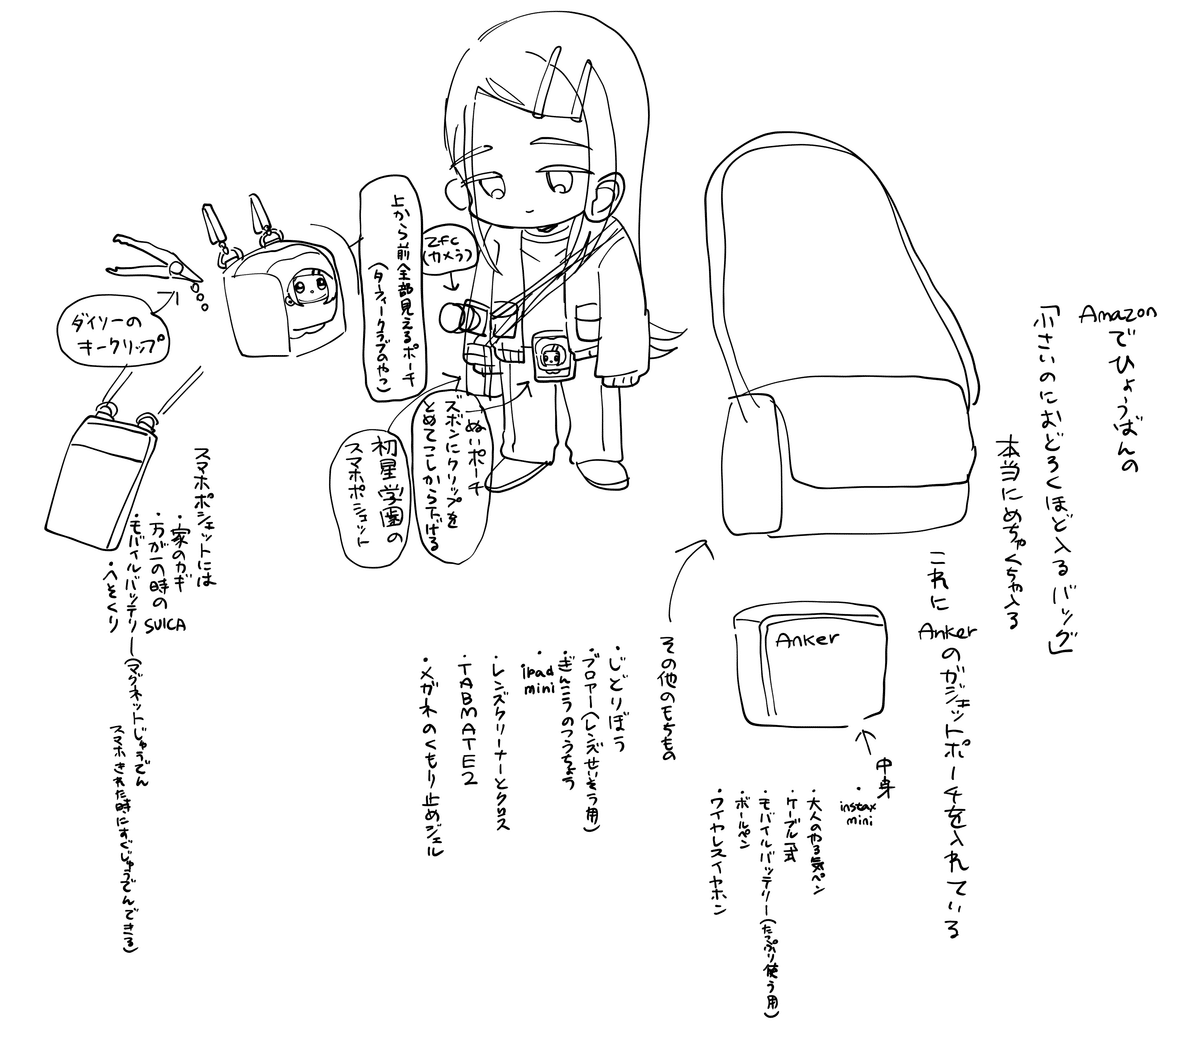 Amazonでひょうばんの
「小さいのにおどろくほど入るバッグ」
本当にめちゃくちゃ入る
これにAnkerのガジェットポーチを入れている
Anker
中身
・instax mini
・大人のやる気ペン
・ケーブル一式
・モバイルバッテリー(たっぷり使う用)
・ボールペン
・ワイヤレスイヤホン
その他のもちもの
・じどりぼう
・ブロアー(レンズせいそう用)
・ぎんこうのつうちょう
・ipad mini
・レンズクリーナーとクロス
・TABMATE2
・メガネのくもり止めジェル
Zfc
(カメラ)
上から前全部見えるポーチ
(ターフィークラブのやつ)
ぬいポーチ
ズボンにクリップを
とめてこしから下げる
初星学園の
スマホポシェット
ダイソーの
キークリップ
スマホポシェットには
・家のカギ
・万が一の時のSUICA
・モバイルバッテリー(マグネットじゅうでん
スマホきれた時にすぐじゅうでんできる)
・へそくり